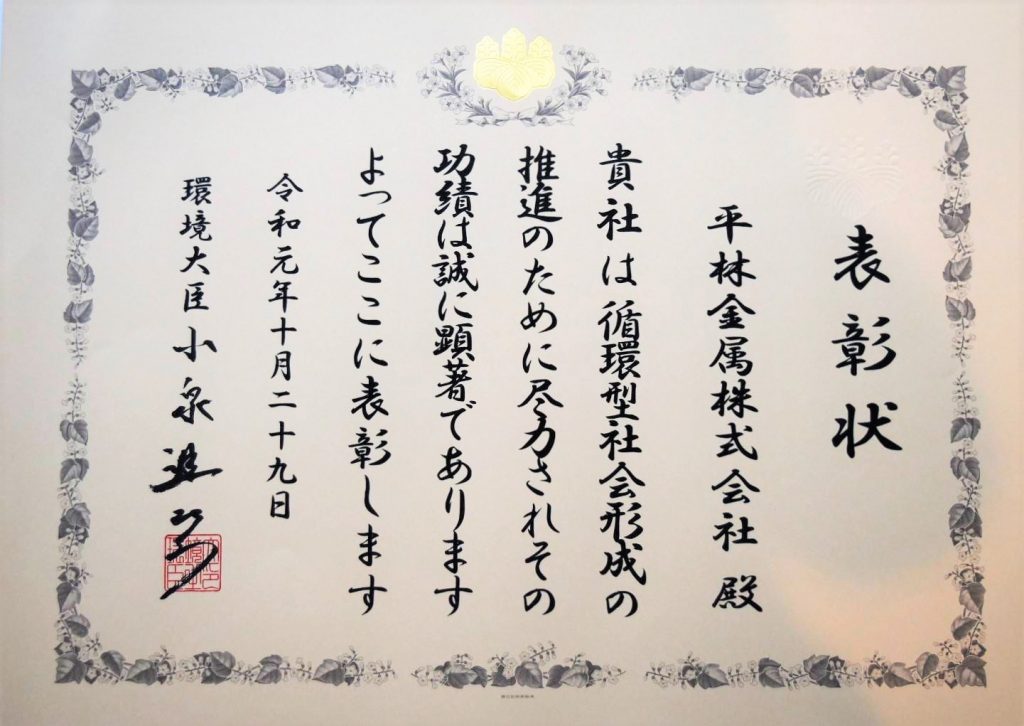 表彰状
平林金属株式会社 殿
貴社は循環型社会形成の
推進のために尽力されその
功績は誠に顕著であります
よってここに表彰します
令和元年十月二十九日
環境大臣 小泉進次郎